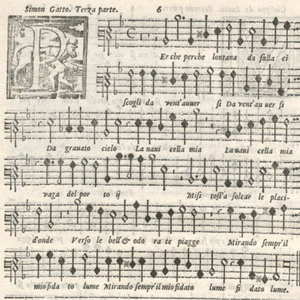 Simon Gatto. Terza parte. 6
P Er che perche lontana da falla ci
scogli da vent'auuer si Da vent'au uer si
Da grauato cielo La naui cella mia La naui cella mia
vaga del por to ij Misi tosta solcar le placi-
d'onde Verso le bell'& odo ra te piagge Mirando sempr'il
mio fida to lume Mirando sempr'il mio fidato lume fi dato lume.